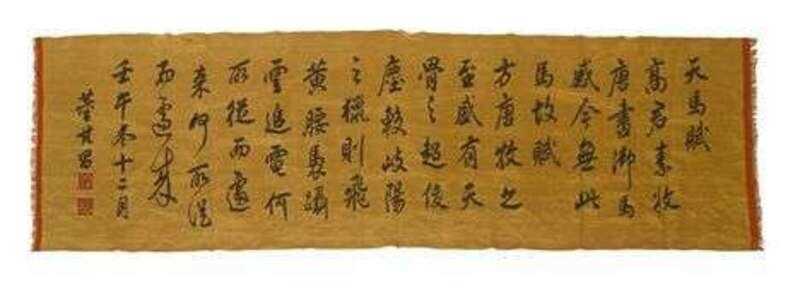 天馬賦
高君素收
唐畫御馬
感今無此
馬故賦
方唐牧之
至盛有天
骨之超俊
塵較岐陽
之獵則飛
黃腰褭躡
雲追電何
所從而遽
來何所從
而遽來
壬午冬十二月
董其昌